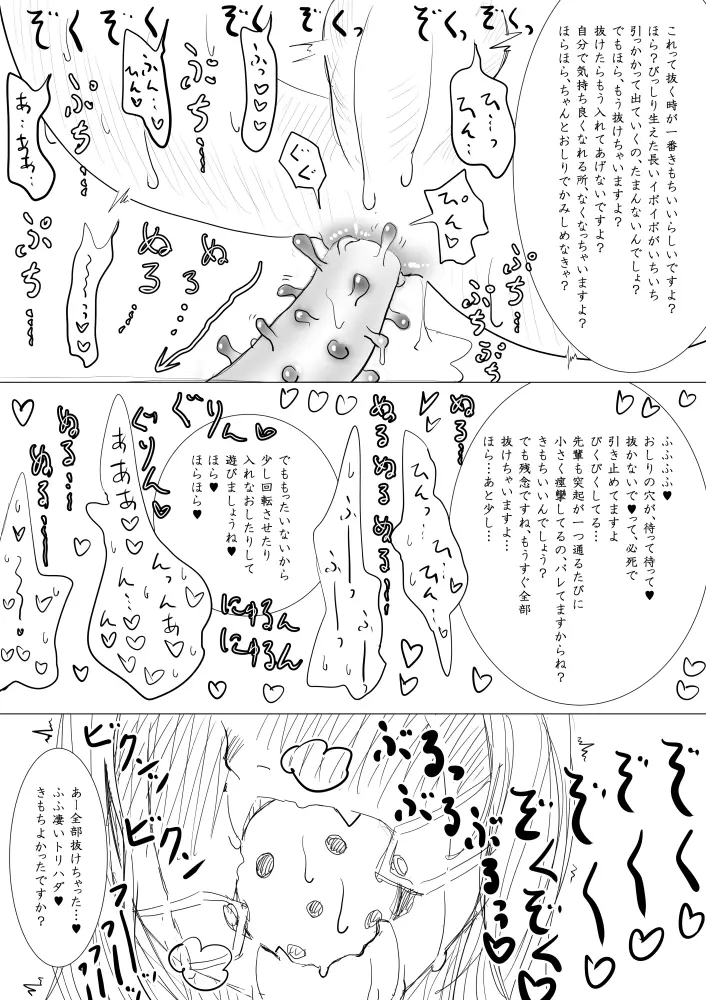 これって抜く時が一番きもちいいらしいですよ？
ほら？びっしり生えた長いイボイボがいちいち
引っかかって出ていくの、たまんないんでしょ？
でもほら、もう抜けちゃいますよ？
抜けたらもう入れてあげないですよ？
自分で気持ち良くなれる所、なくなっちゃいますよ？
ほらほら、ちゃんとおしりでかみしめなきゃ？
ぞくっ
ぞくっ
ぞくっ
ぞくっ
ひ…っ
ひん…
ーふっ♡♡♡
ふん…
ひん♡
あ…ああ…
ぷち…
ぷち…
ぐぐ
ぴん♡
ぷち…
ぷち…
ぬる…
ぬる…
ぬる…
〜〜っ♡♡
ぷちぷち
ふふふふ♥
おしりの穴が、待って待って♥
抜かないで♥って、必死で
引き止めてますよ
びくびくしてる…
先輩も突起が一つ通るたびに
小さく痙攣してるの、バレてますからね？
きもちいいんでしょう？
でも残念ですね、もうすぐ全部
抜けちゃいますよ…
ほら…あと少し…
ぬる…っ
ぬる…っ
ひんっ…♡♡
ふーーっふっ
でももったいないから
少し回転させたり
入れなおしたりして
遊びましょうね♥
ほら♥
ほらほら♥
ぐりん♡
ぐりん♡
にゅるん
にゅるん
あああ♡♡
ん…ん…
んっんあ
ぬる…っ
ぬる…っ
ぞく〜っ♡
ぞく〜っ♡
ぞくぞくっ♡
ぶるっ
ぶるぶるっ♡
ビクンッ
ビクンッ
あー全部抜けちゃった…♥
ふふ凄いトリハダ♥
きもちよかったですか？